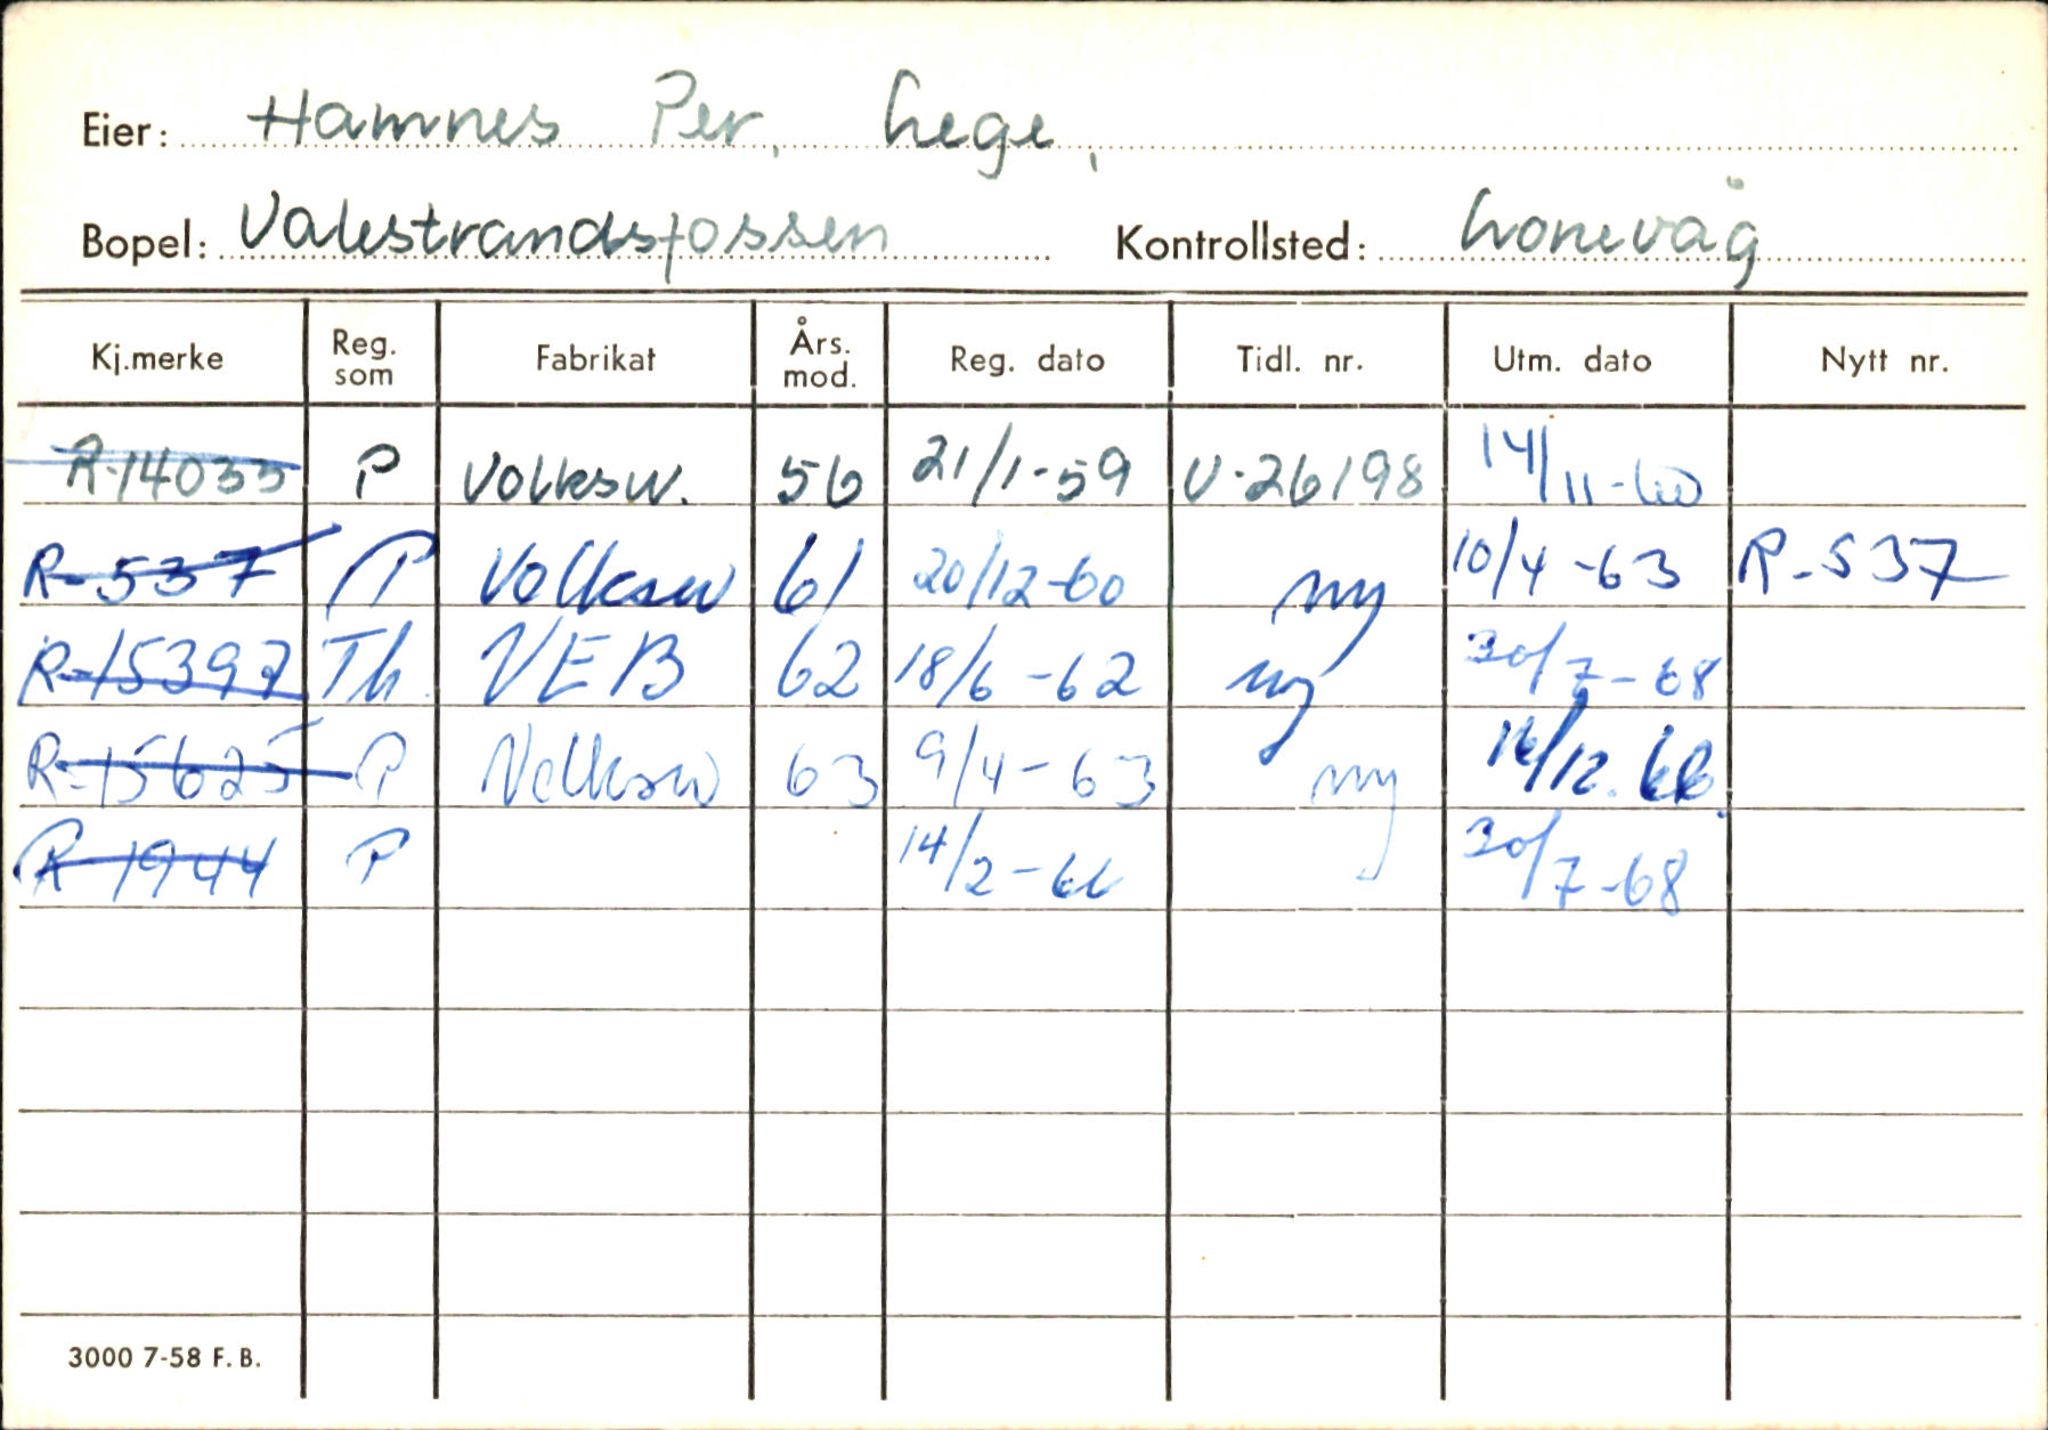 Eier: Hamnes Per, Lege,
Bopel: Valestrandsfossen Kontrollsted: Lonevåg
Kj.merke Reg. som Fabrikat Års. mod. Reg. dato Tidl. nr. Utm. dato Nytt nr.
R-14033 P Volksw. 56 21/1-59 U-26198 14/11-60
R-537 P Volksw 61 20/12-60 ny 10/4-63 R-537
R-15397 Th. VEB 62 18/6-62 ny 30/7-68
R-15625 P Volksw 63 9/4-63 ny /12.66.
R-1944 P 14/2-66 30/7-68
3000 7-58 F. B.